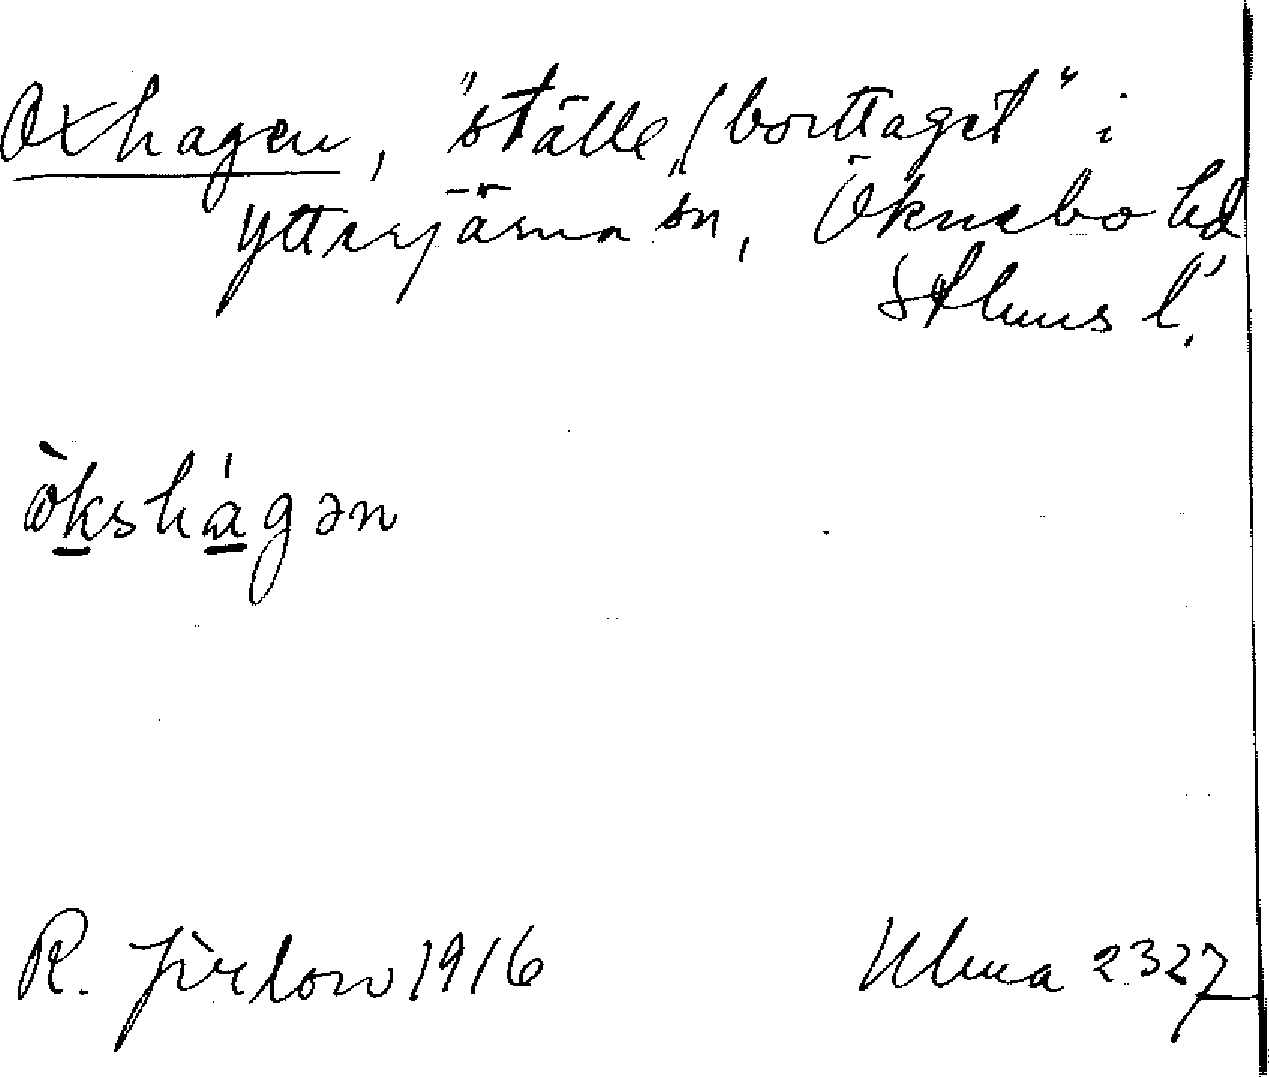 Oxhagen, "ställe, (borttaget" i
Ytterjärna sn, Öknebo hd
Sthms l.
ȯ̀kshágən
R. Jirlow 1916
Ulma 2327